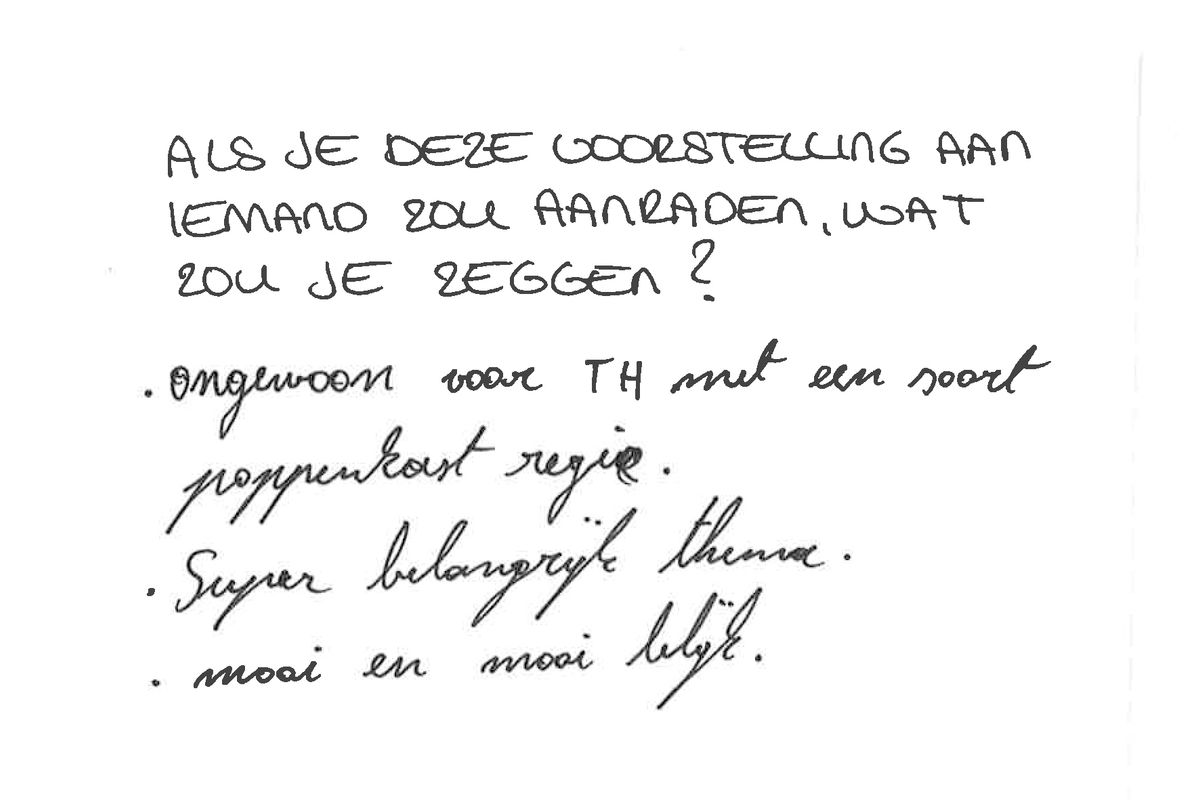 ALS JE DEZE VOORSTELLING AAN
IEMAND ZOU AANRADEN, WAT
ZOU JE ZEGGEN?
. ongewoon voor TH met een soort
poppenkast regie.
. Super belangrijk thema.
. mooi en mooi lelijk.